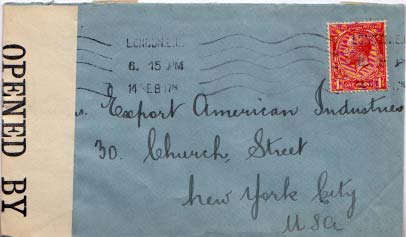 OPENED BY
LONDON.E.C.
6. 15 PM
14 FEB 17
Export American Industries
30. Church, Street
New York City
USA